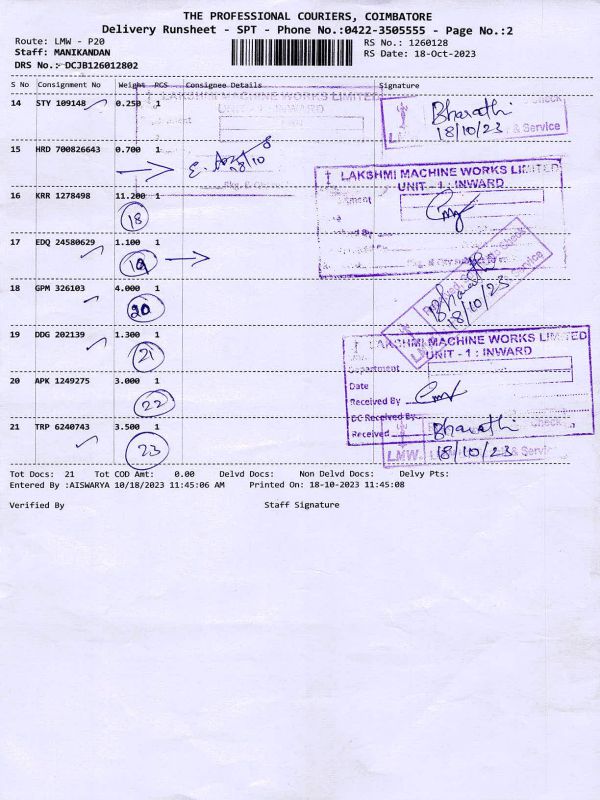 THE PROFESSIONAL COURIERS, COIMBATORE
Delivery Runsheet - SPT - Phone No.:0422-3505555 - Page No.:2
Route: LMW - P20
RS No.: 1260128
Staff: MANIKANDAN
RS Date: 18-Oct-2023
DRS No.: DCJB126012802
S No Consignment No Weight PCS Consignee Details Signature
14 STY 109148 0.250 1
LAKSHMI MACHINE WORKS LIMITED
Bharathi
18/10/23
& Service
15 HRD 700826643 0.700 1
LAKSHMI MACHINE WORKS LIMITED
UNIT - 1 : INWARD
16 KRR 1278498 11.200 1
18
17 EDQ 24580629 1.100 1
19
18 GPM 326103 4.000 1
20
Bharathi
18/10/23
19 DDG 202139 1.300 1
21
LAKSHMI MACHINE WORKS LIMITED
UNIT - 1 : INWARD
Department
Date
20 APK 1249275 3.000 1
22
Received By
DC Received By
21 TRP 6240743 3.500 1
23
Received
Bharathi
18/10/23
LMW
& Service
Tot Docs: 21 Tot COD Amt: 0.00 Delvd Docs: Non Delvd Docs: Delvy Pts:
Entered By :AISWARYA 10/18/2023 11:45:06 AM Printed On: 18-10-2023 11:45:08
Verified By Staff Signature